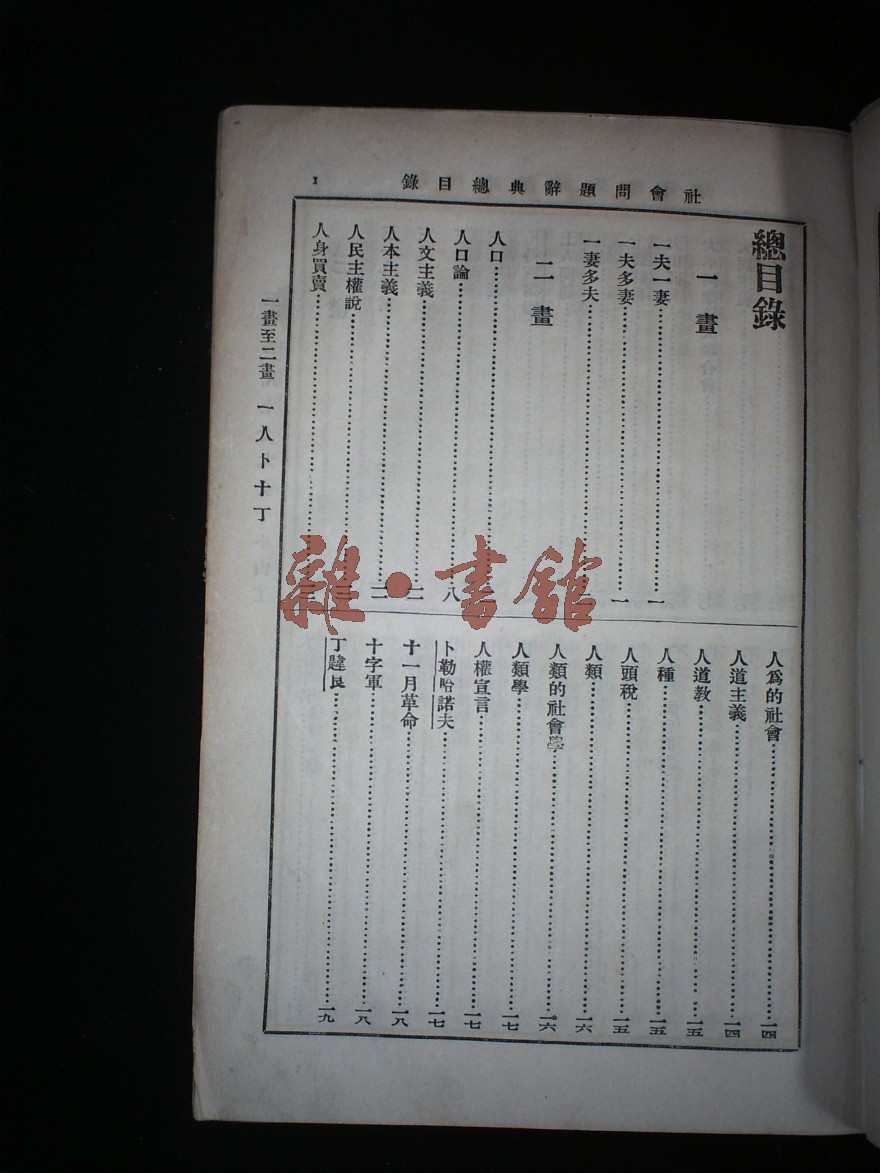 社會問題辭典總目錄
1
總目錄
一畫
一夫一妻……一
一夫多妻……一
一妻多夫……
二畫
人口……
人口論……八
人文主義……
人本主義……
人民主權說……
人身買賣……
人爲的社會……一四
人道主義……一四
人道教……一五
人種……一五
人頭稅……一五
人類……一六
人類的社會學……一六
人類學……一七
人權宣言……一七
卜勒哈諾夫……一七
十一月革命……一八
十字軍……一八
丁韙良……一九
一畫至二畫 一人卜十丁
雜·書館